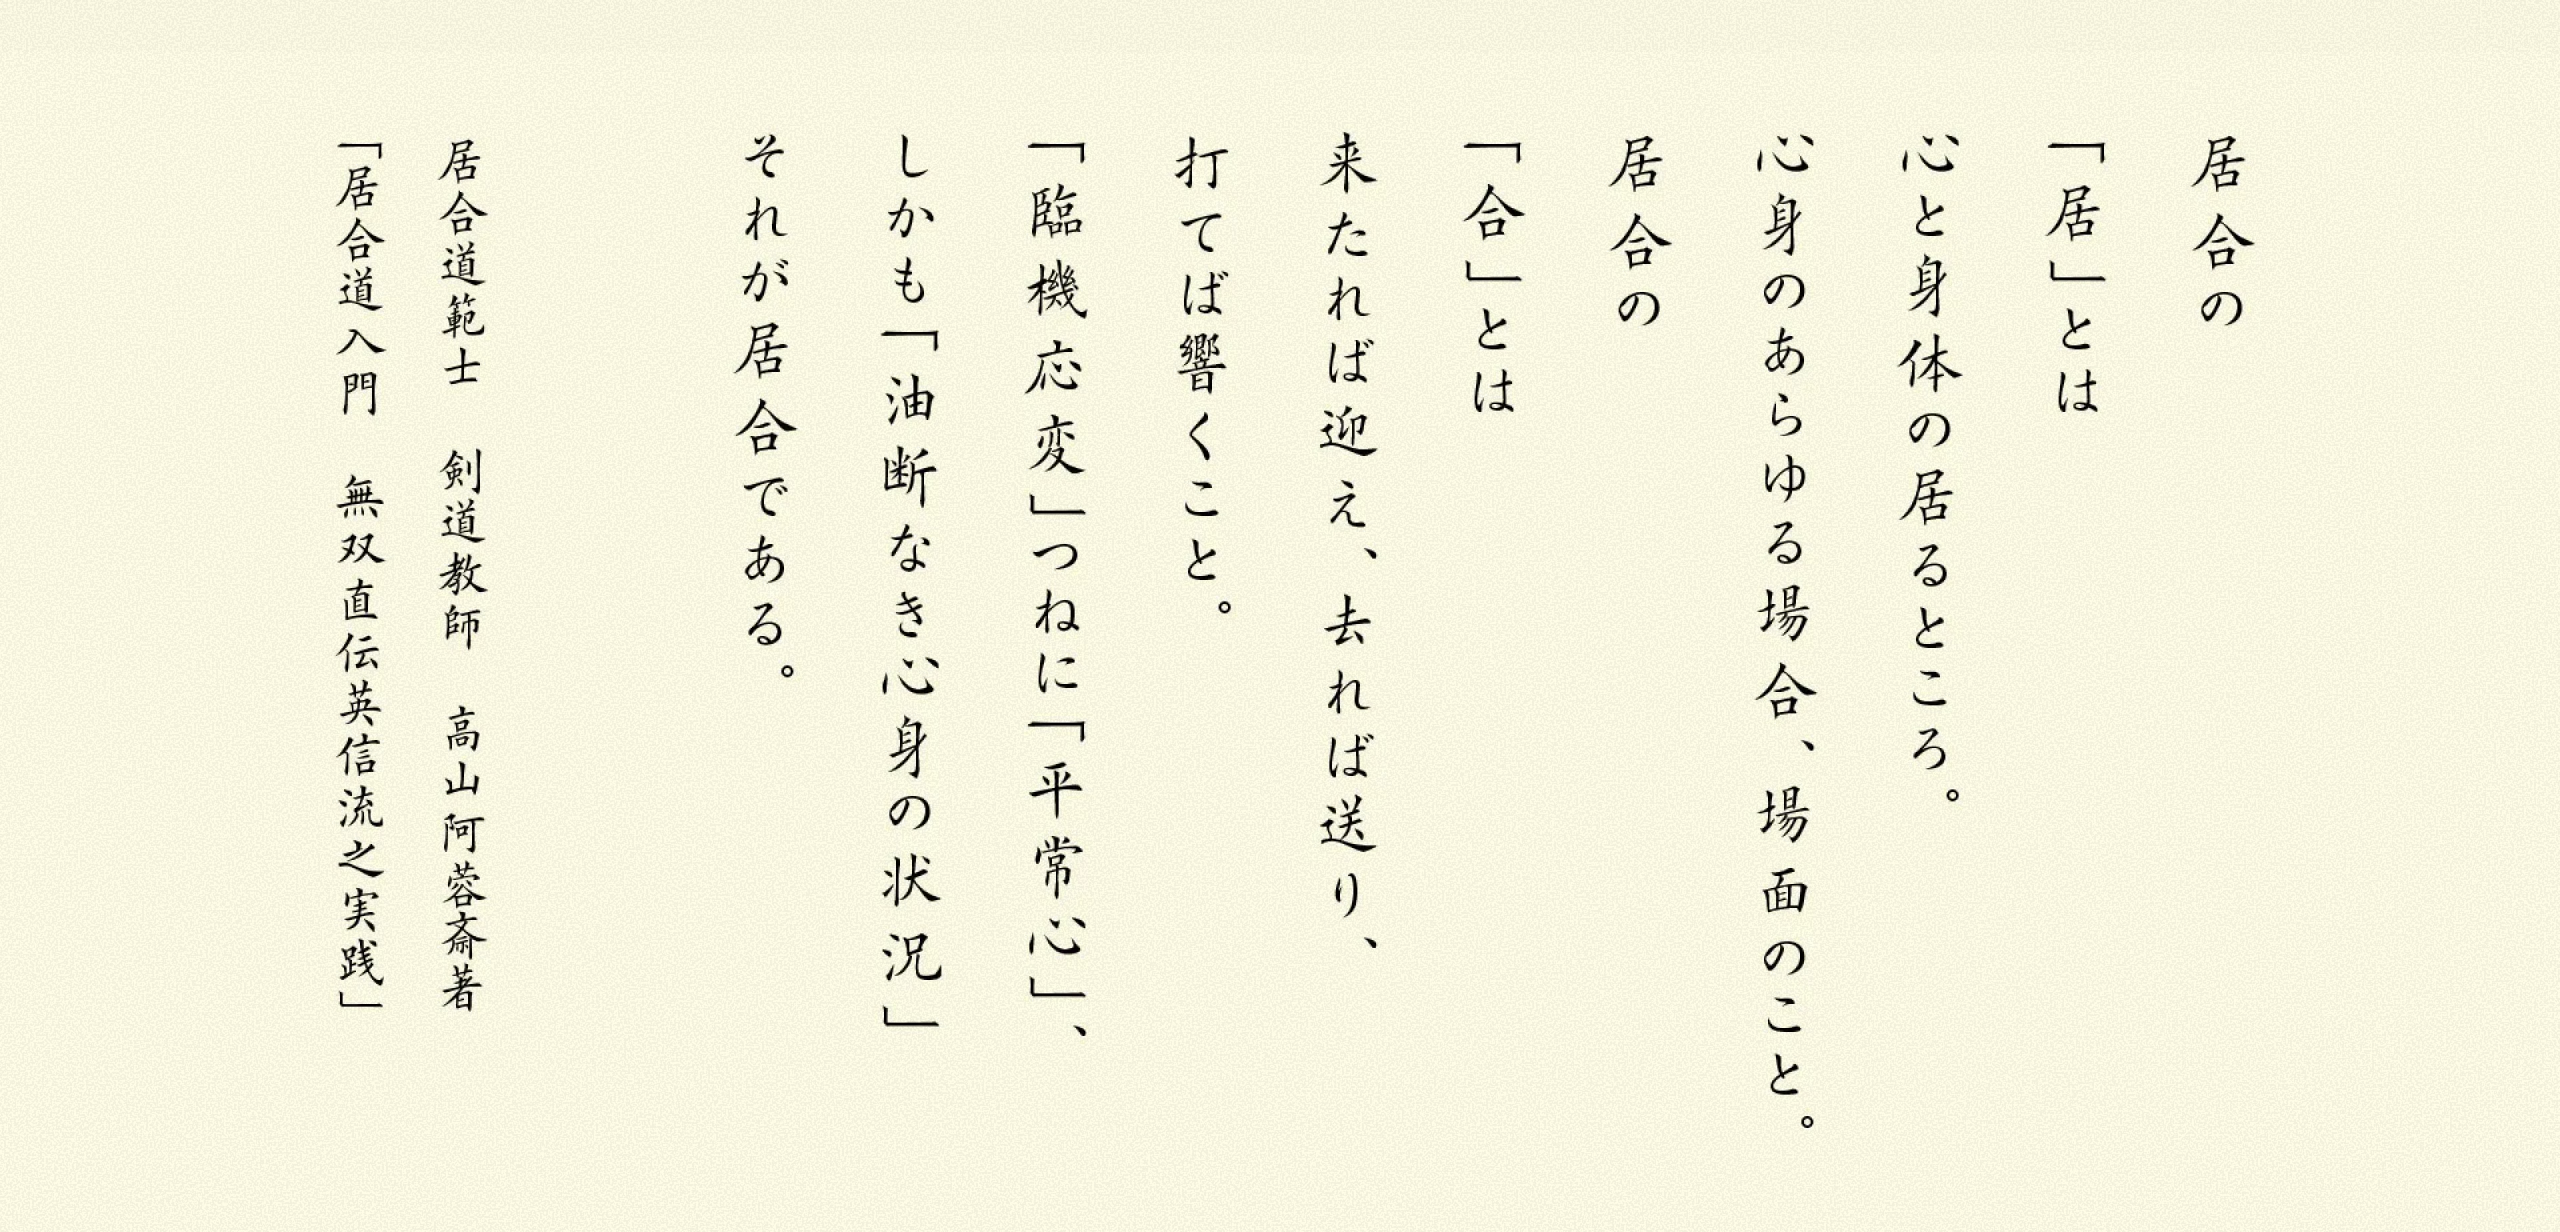 居合の
「居」とは
心と身体の居るところ。
心身のあらゆる場合、場面のこと。
居合の
「合」とは
来たれば迎え、去れば送り、
打てば響くこと。
「臨機応変」つねに「平常心」、
しかも「油断なき心身の状況」
それが居合である。
居合道範士　剣道教師　高山阿蓉斎著
「居合道入門　無双直伝英信流之実践」